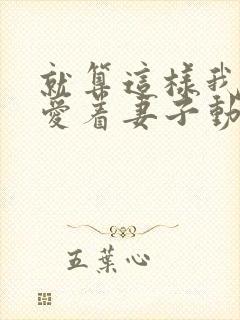 就算這樣我
愛着妻子動
五葉心